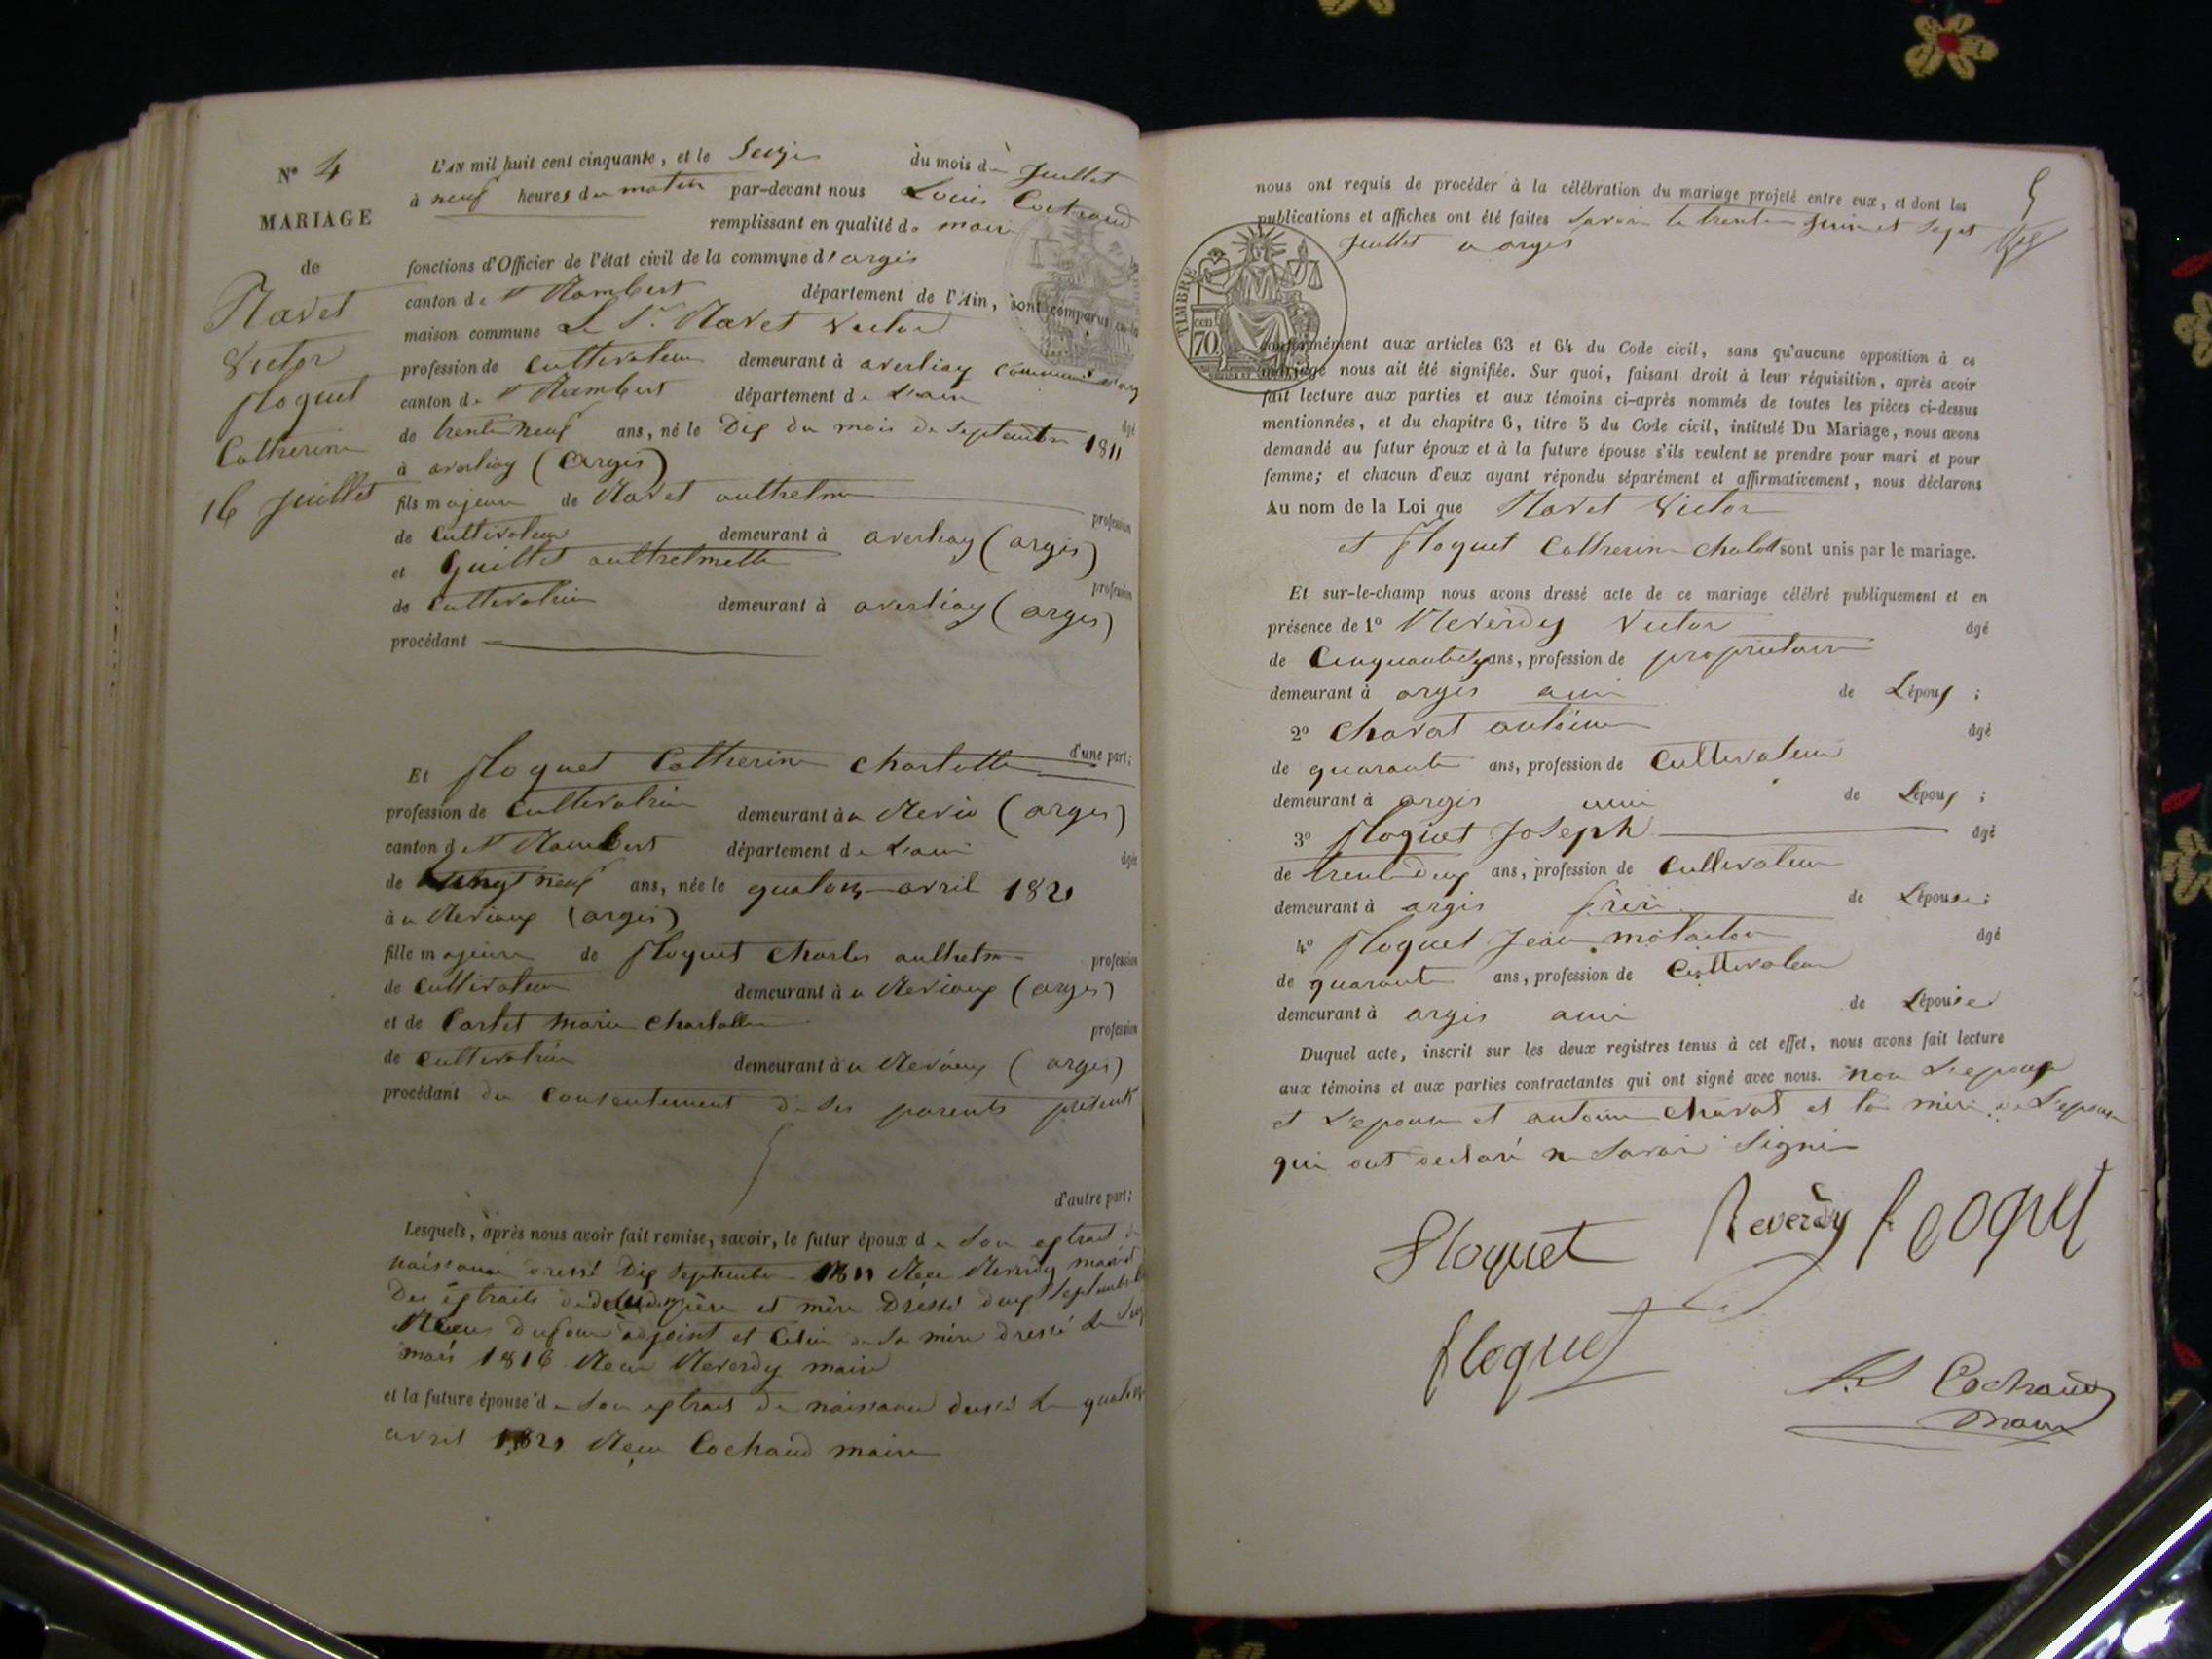 N° 4
MARIAGE
de
Ravet
Victor
floquet
Catherine
16 juillet
L'AN mil huit cent cinquante, et le Seize du mois de juillet
à neuf heures du matin par-devant nous Louis Cochaud
remplissant en qualité de maire
fonctions d'Officier de l'état civil de la commune d'argis
canton de St Rambert département de l'Ain, sont comparus en la
maison commune Le Sr. Ravet Victor
profession de cultivateur demeurant à averliaz commune d'arg
canton de St Rambert département de L'ain âgé
de trente neuf ans, né le Dix du mois de Septembre 1811
à averliaz (argis)
fils majeur de Ravet anthelme profession
de cultivateur demeurant à averliaz (argis)
et Guillet anthelmette profession
de cultivatrice demeurant à averliaz (argis)
procédant
d'une part;
Et floquet Catherine charlotte
profession de cultivatrice demeurant à (argis)
canton de St Rambert département de L'ain âgée
de vingt neuf ans, née le quatorze avril 1821
à (argis)
fille majeure de floquet charles anthelme profession
de cultivateur demeurant à (argis)
et de Cartet marie charlotte profession
de cultivatrice demeurant à (argis)
procédant du consentement de ses parents présents
d'autre part;
Lesquels, après nous avoir fait remise, savoir, le futur époux de son extrait de
naissance dressé Dix Septembre 1811 Reçu Reverdy maire
Des extraits de père et mère Dressé deux Septembre
Reçu dufour adjoint et Celui de Sa mère dressé le
mars 1816 Reçu Reverdy maire
et la future épouse de son extrait de naissance dressé le quatorze
avril 1821 Reçu Cochaud maire
5
nous ont requis de procéder à la célébration du mariage projeté entre eux, et dont les
publications et affiches ont été faites savoir le trente juin et Sept
juillet a argis
TIMBRE
70
conformément aux articles 63 et 64 du Code civil, sans qu'aucune opposition à ce
mariage nous ait été signifiée. Sur quoi, faisant droit à leur réquisition, après avoir
fait lecture aux parties et aux témoins ci-après nommés de toutes les pièces ci-dessus
mentionnées, et du chapitre 6, titre 5 du Code civil, intitulé Du Mariage, nous avons
demandé au futur époux et à la future épouse s'ils veulent se prendre pour mari et pour
femme; et chacun d'eux ayant répondu séparément et affirmativement, nous déclarons
Au nom de la Loi que Ravet Victor
et floquet Catherine sont unis par le mariage.
Et sur-le-champ nous avons dressé acte de ce mariage célébré publiquement et en
présence de 1° Reverdy Victor âgé
de ans, profession de propriétaire
demeurant à argis ami de Lépoux ;
2° Charvat antoine âgé
de quarante ans, profession de cultivateur
demeurant à argis ami de Lépoux ;
3° floquet Joseph âgé
de trente deux ans, profession de cultivateur
demeurant à argis frère de Lépouse ;
4° floquet Jean âgé
de quarante ans, profession de cultivateur
demeurant à argis ami de Lépouse
Duquel acte, inscrit sur les deux registres tenus à cet effet, nous avons fait lecture
aux témoins et aux parties contractantes qui ont signé avec nous. non L'epoux
et L'epouse et antoine charvat et la mère de L'epouse
qui ont déclaré ne savoir Signer
floquet Reverdy floquet
floquet
Cochaud
maire